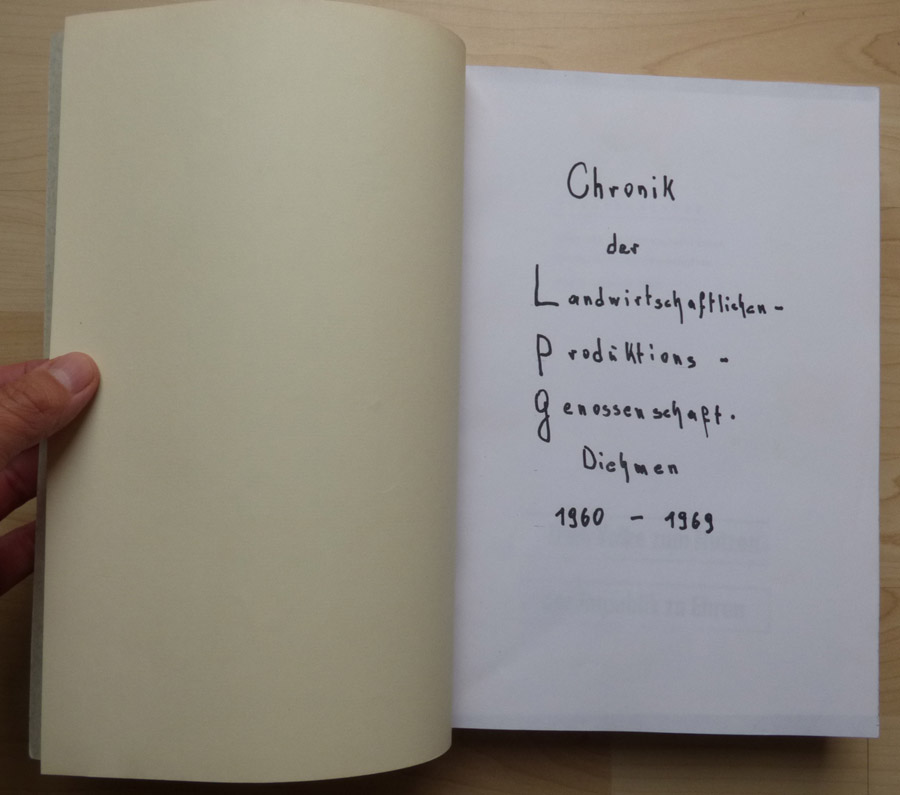 Chronik
der
Landwirtschaftlichen-
Produktions-
Genossenschaft.
Diehmen
1960 - 1969